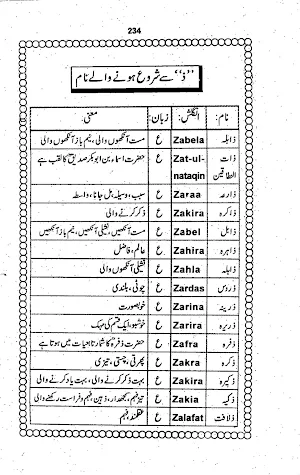 234
”ذ“ سے شروع ہونے والے نام
نام: انگلش: زبان: معنی:
ذابلہ Zabela ع مست آنکھوں والی، نیم باز آنکھوں والی
ذات Zat-ul- ع حضرت اسماء بنت ابوبکر صدیق کا لقب ہے
النطاقین nataqin
ذارعہ Zaraa ع سبب، وسیلہ، مل جانا، واسطہ
ذاکرہ Zakira ع ذکر کرنے والی
ذابل Zabel ع مست آنکھیں، نشیلی آنکھیں، نیم باز آنکھیں
ذاہرہ Zahira ع عالم، فاضل
ذاہلہ Zahla ع نشیلی آنکھوں والی
ذردس Zardas ع چوٹی، بلندی
ذرینہ Zarina ع خوبصورت
ذریرہ Zarira ع خوشبو، ایک قسم کی مہک
ذفرہ Zafra ع حضرت ذفرہ کا شمار تابعیات میں ہوتا ہے
ذکرہ Zakra ع پھرتی، چستی، تیزی
ذکیرہ Zakira ع بہت ذکر کرنے والی، بہت یاد کرنے والی
ذکیہ Zakia ع تیز فہم، سمجھدار، ذہین، فہم و فراست رکھنے والی
ذلافت Zalafat ع عقلمند، فہم